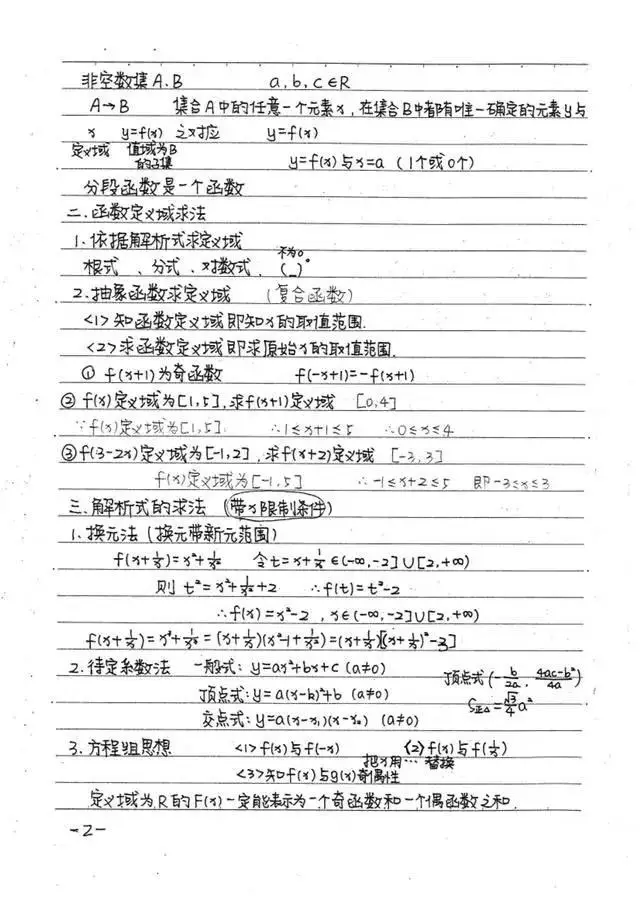 非空数集A.B a,b,c∈R
A→B 集合A中的任意一个元素x,在集合B中都有唯一确定的元素y与
x y=f(x) 之对应 y=f(x)
定义域 值域为B的子集 y=f(x)与x=a (1个或0个)
分段函数是一个函数
二.函数定义域求法
1.依据解析式求定义域
根式、分式、对数式、(_)° 不为0
2.抽象函数求定义域 (复合函数)
<1>知函数定义域即知x的取值范围.
<2>求函数定义域即求原始x的取值范围.
① f(x+1)为奇函数 f(-x+1)=-f(x+1)
② f(x)定义域为[1,5],求f(x+1)定义域 [0,4]
∵f(x)定义域为[1,5]. ∴1≤x+1≤5 ∴0≤x≤4
③f(3-2x)定义域为[-1,2],求f(x+2)定义域 [-3,3]
f(x)定义域为[-1,5] ∴-1≤x+2≤5 即-3≤x≤3
三.解析式的求法 (带x限制条件)
1.换元法(换元带新元范围)
f(x+1/x)=x²+1/x² 令t=x+1/x∈(-∞,-2]∪[2,+∞)
则 t²=x²+1/x²+2 ∴f(t)=t²-2
∴f(x)=x²-2,x∈(-∞,-2]∪[2,+∞)
f(x+1/x)=x³+1/x³=(x+1/x)(x²-1+1/x²)=(x+1/x)[(x+1/x)²-3]
2.待定系数法 一般式: y=ax²+bx+c (a≠0) 顶点式(-b/2a, 4ac-b²/4a)
顶点式: y=a(x-k)²+b (a≠0) S正△=√3/4 a²
交点式: y=a(x-x₁)(x-x₂) (a≠0)
3.方程组思想 <1>f(x)与f(-x) <2>f(x)与f(1/x)
把x用…替换
<3>知f(x)与g(x)奇偶性
定义域为R的F(x)一定能表示为一个奇函数和一个偶函数之和.
-2-